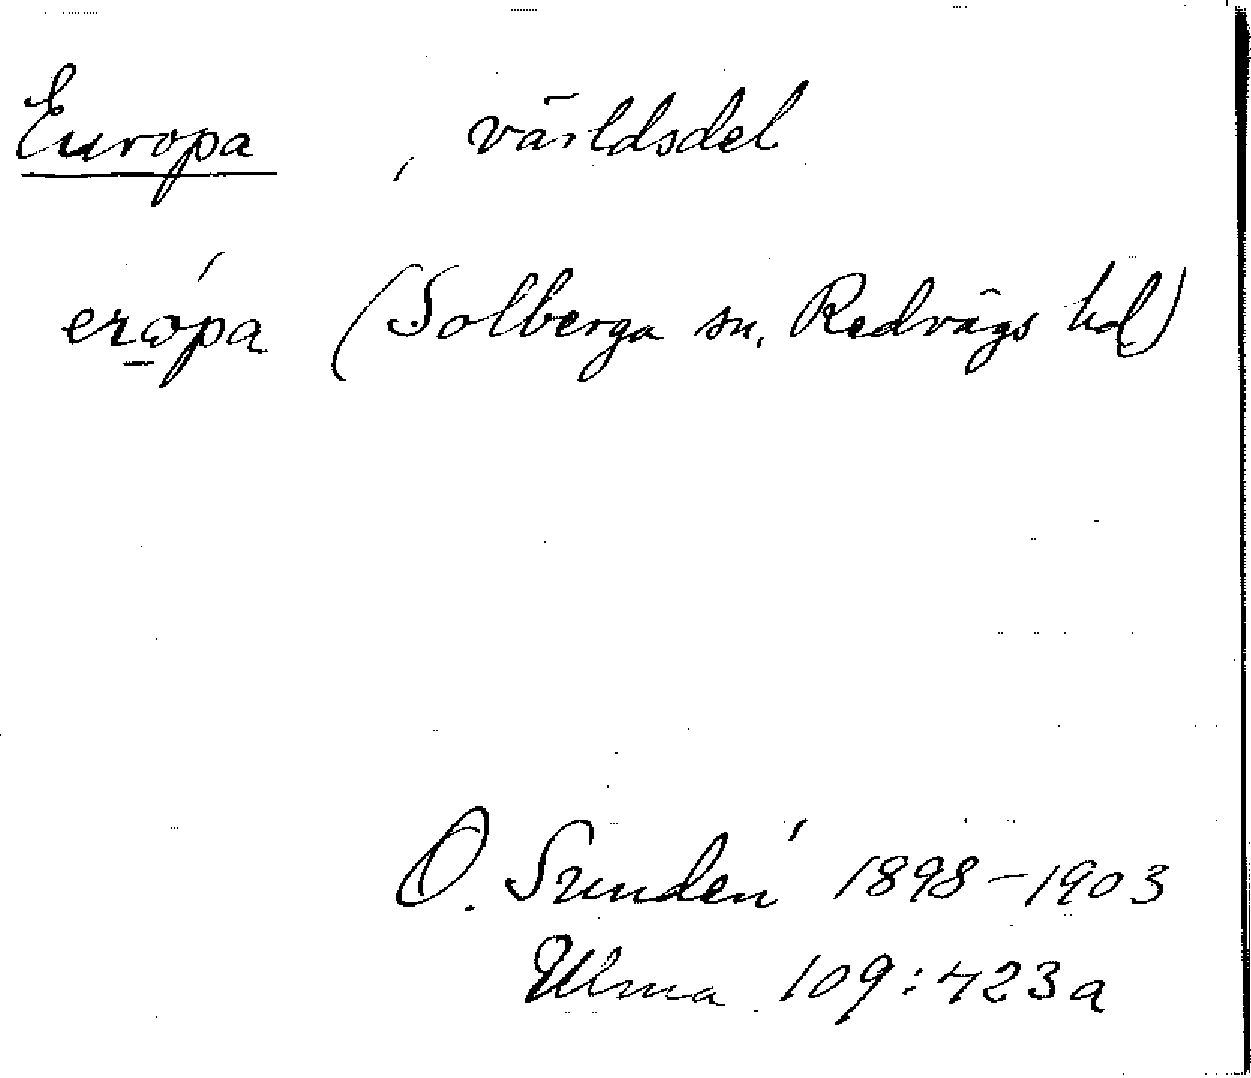 Europa , världsdel
erópa (Solberga sn, Redvägs hd)
O. Sundén 1898-1903
Ulma 109:423a